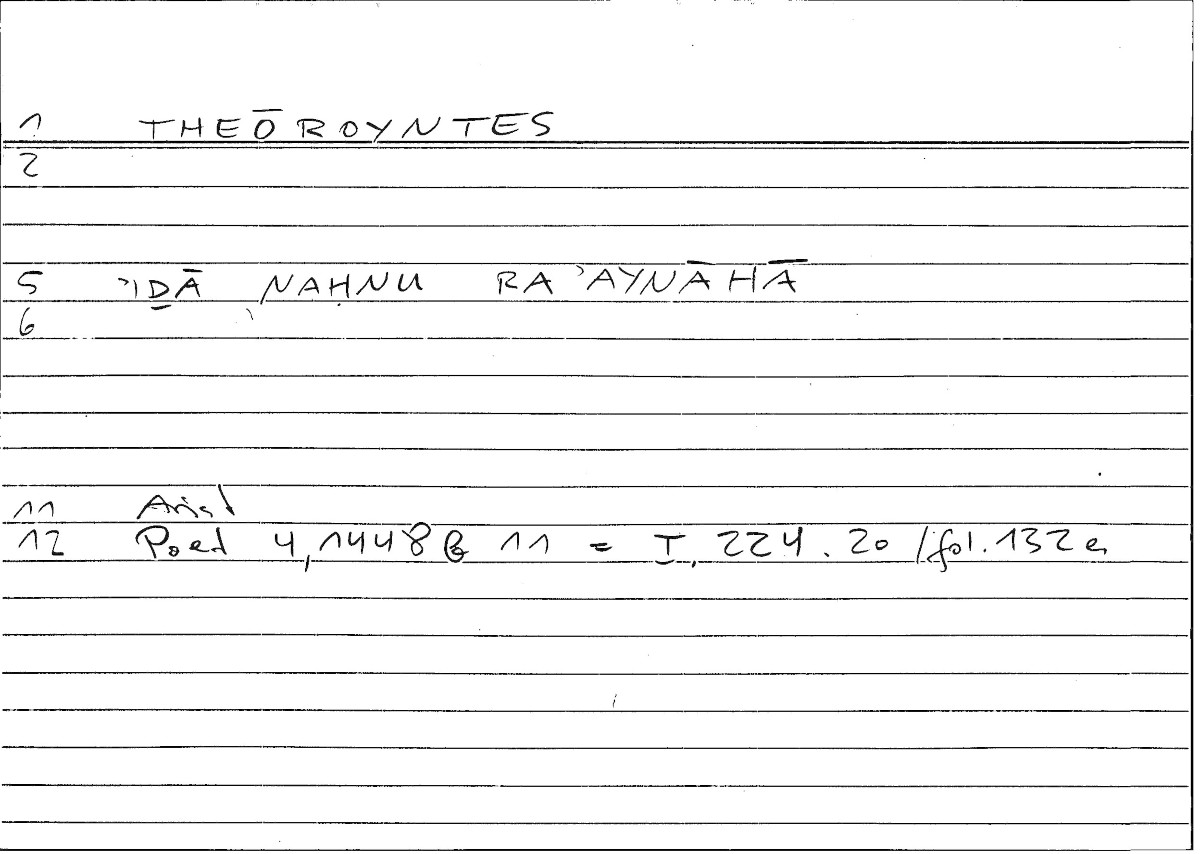 1 THEŌROYNTES
2
5 ʾIḎĀ NAḤNU RAʾAYNĀHĀ
6
11 Arist
12 Poet 4,1448b 11 = I, 224.20 /fol.132a